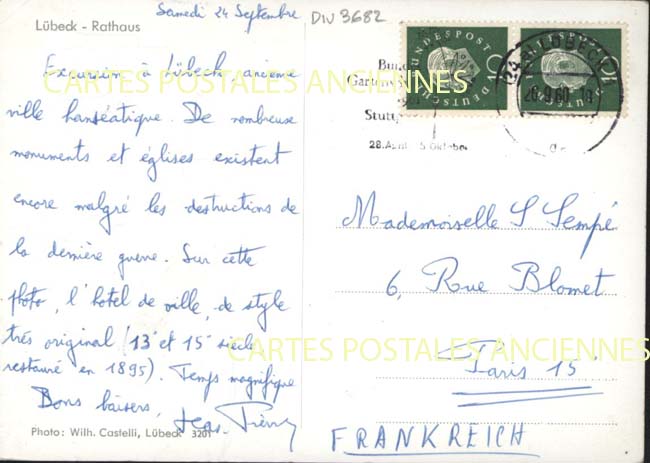 Samedi 24 Septembre
DIV 3682
Lübeck - Rathaus
Excursion à Lübeck, ancienne
ville hanséatique. De nombreux
monuments et églises existent
encore malgré les destructions de
la dernière guerre. Sur cette
photo, l'hôtel de ville, de style
très original (13e et 15e siècle
restauré en 1895). Temps magnifique
Bons baisers,
Jean-Pierre
Photo: Wilh. Castelli, Lübeck 3201
DEUTSCHE BUNDESPOST
DEUTSCHE BUNDESPOST
LÜBECK
Stutt
28. April 5. Oktober
Mademoiselle S Sempé
6, Rue Blomet
Paris 15
FRANKREICH
CARTES POSTALES ANCIENNES
CARTES POSTALES ANCIENNES